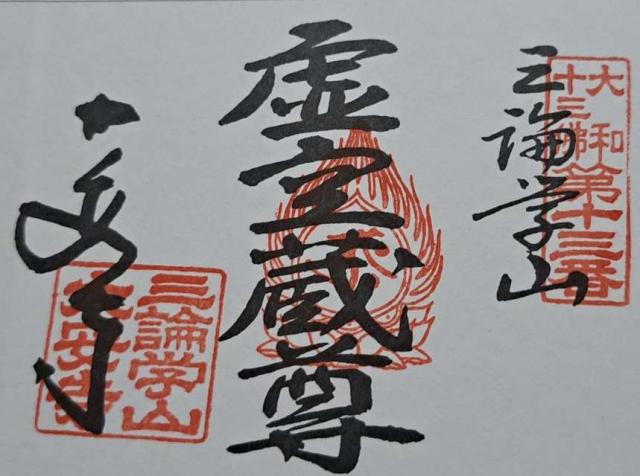 大和
十三佛
第十三番
三論学山
虚空蔵尊
大安寺
三論学山
大安寺